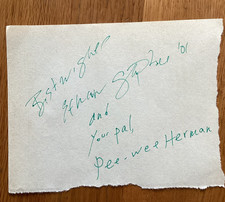 Best wishes
Ethan
'01
and
your pal,
Pee-wee Herman